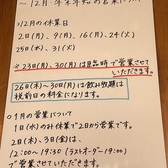 12月、年末年始の営業について
○12月の休業日
2日(月)、9日(月)、16日(月)、24日(火)、
25日(水)、31日(火)
※23日(月)、30日(月)は昆布〆にて営業させて
いただきます。
26日(木)〜30日(月)は飲み放題は
税前日の料金になります。
○1月の営業について
1日(水)のみ休業で2日から営業です。
2日(木)、3日(金)は、
12:00〜19:30(ラストオーダー19:00)
で営業させていただきます。